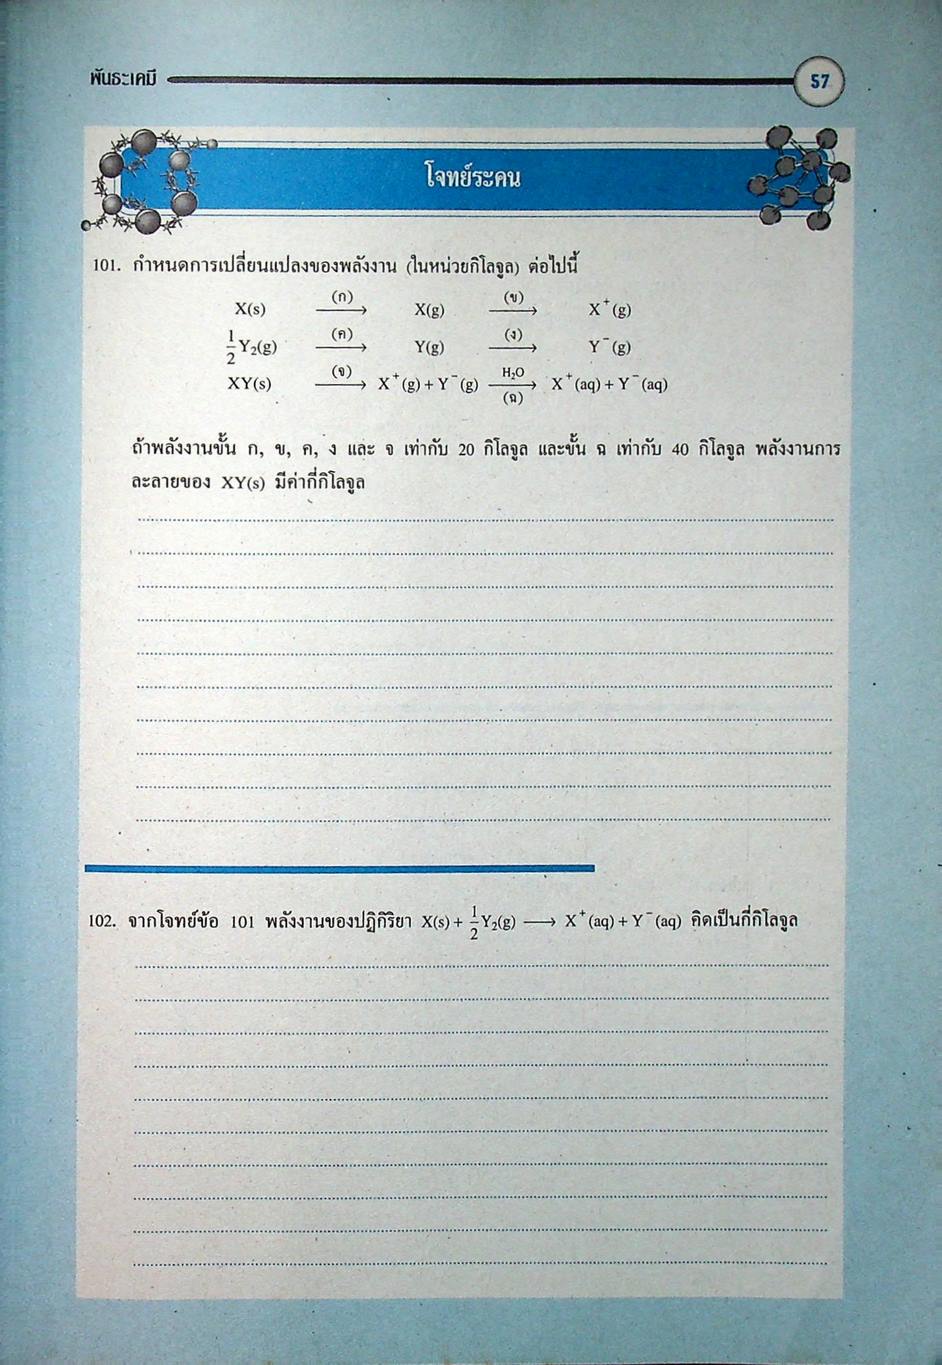 พันธะเคมี 57
โจทย์ระคน
101. กำหนดการเปลี่ยนแปลงของพลังงาน (ในหน่วยกิโลจูล) ต่อไปนี้
X(s) —(ก)→ X(g) —(ข)→ X⁺(g)
½Y₂(g) —(ค)→ Y(g) —(ง)→ Y⁻(g)
XY(s) —(จ)→ X⁺(g) + Y⁻(g) —H₂O (ฉ)→ X⁺(aq) + Y⁻(aq)
ถ้าพลังงานขั้น ก, ข, ค, ง และ จ เท่ากับ 20 กิโลจูล และขั้น ฉ เท่ากับ 40 กิโลจูล พลังงานการ
ละลายของ XY(s) มีค่ากี่กิโลจูล
102. จากโจทย์ข้อ 101 พลังงานของปฏิกิริยา X(s) + ½Y₂(g) ⟶ X⁺(aq) + Y⁻(aq) คิดเป็นกี่กิโลจูล